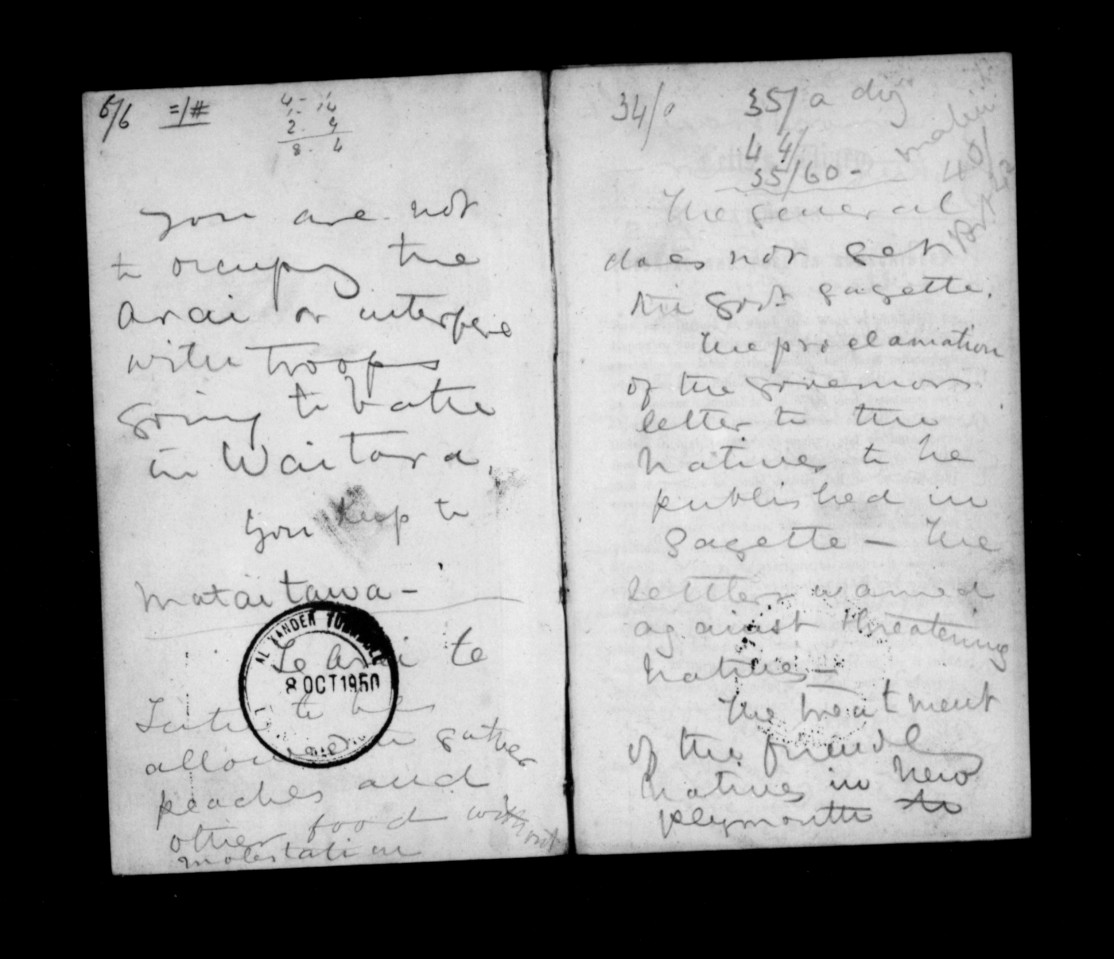 6/6 =/#
4 - 14
2 . 4
8 . 4
you are not
to occupy the
Arai or interfere
with troops
going to bathe
in Waitara.
You keep to
Mataitawa -
Te Arei te
ALEXANDER TURNBULL
8 OCT 1950
to be
allowed to gather
peaches and
other food without
molestation
34/ 35/ a day
44/
35/60 - 40/
The general
does not get
the Govt gazette.
The proclamation
of the governors
letter to the
Natives to be
published in
Gazette - The
settlers warned
against threatening
Natives -
The treatment
of the friendly
Natives in New
Plymouth to